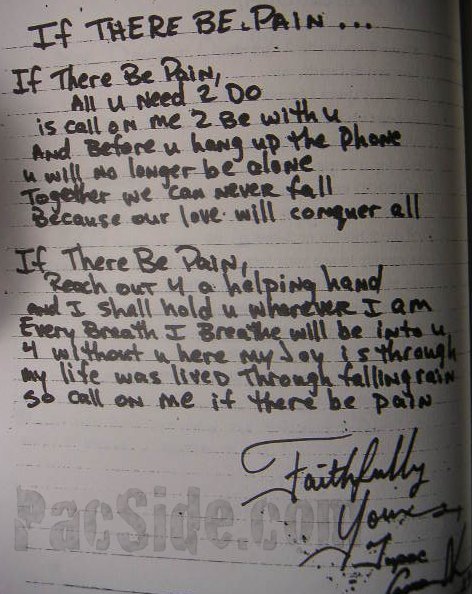 If THERE BE PAIN...
If There Be Pain,
All u Need 2 Do
is call on me 2 Be with u
And Before u hang up the Phone
u will no longer be alone
Together we can never fall
Because our love will conquer all
If There Be Pain,
Reach out 4 a helping hand
and I shall hold u wherever I am
Every Breath I Breathe will be into u
4 without u here my Joy is through
my life was lived through falling rain
so call on me if there be pain
Faithfully
Yours,
Tupac
PacSide.com